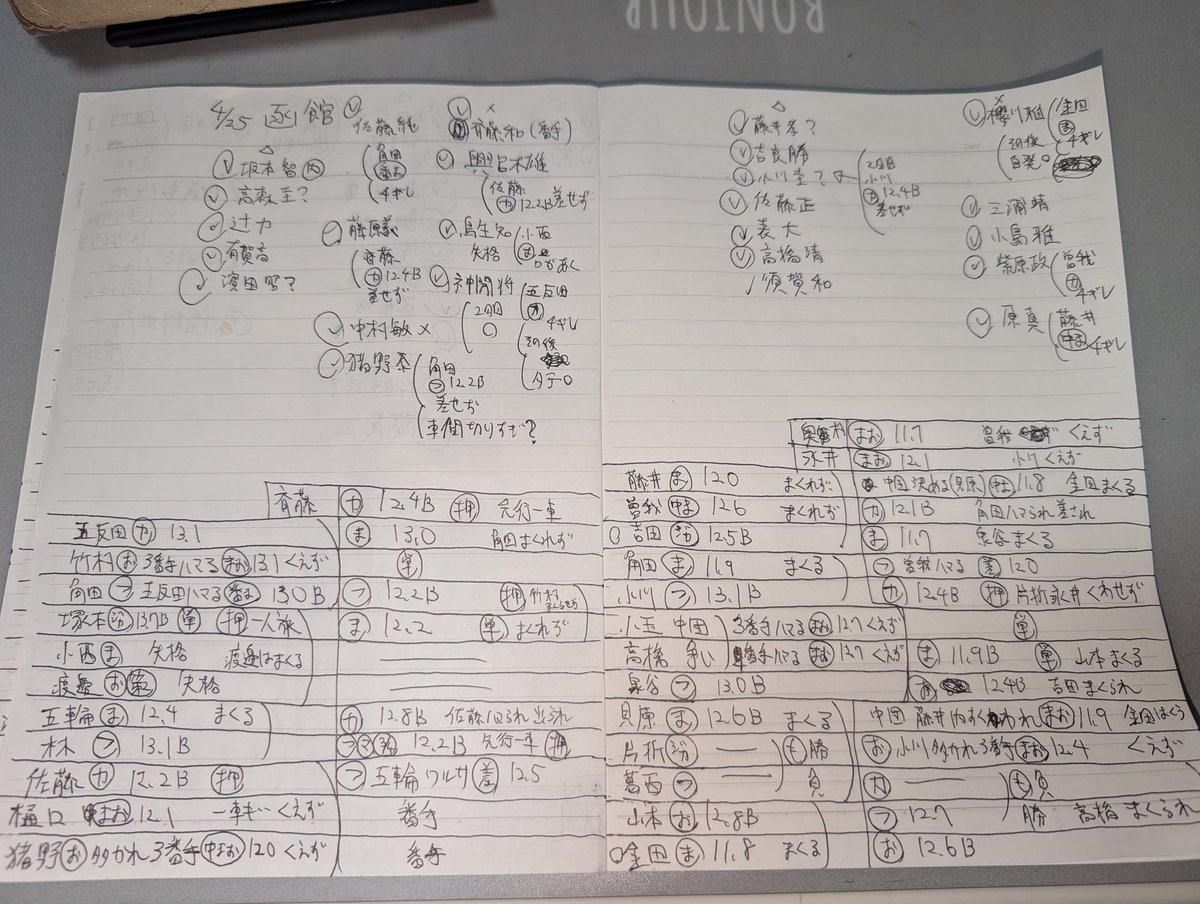 BONJOUR
4/25 函館
佐藤純
角田
番手
4ギレ
斉藤和(番手)
坂本智
高森圭?
辻力
有賀高
濱田昭?
興呂木雄
佐藤
カ 12.2B 差せず
藤原義
斉藤
カ 12.4B
差せず
鳥生知
失格
小西
神開将
2日目
五反田
カ
4ギレ
その後
タテ○
中村敏 ×
猪野泰
角田
フ 12.2B
差せず
車間切りすぎ?
斉藤 カ 12.4B 押 先行一車
五反田 カ 13.1
ま 13.0 角田まくれず
竹村 お 3番手ハマる まお 13.1 くえず
単
角田 フ 五反田ハマる 番手 13.0B
フ 12.2B 押
塚本 分 13.7B 単 押 一人旅
ま 12.2 単 まくれず
小西 ま 失格 渡邉はまくる
渡邉 お 失格
五輪 ま 12.4 まくる
カ 12.8B 佐藤ハマられ出られ
林 フ 13.1B
12.2B 先行一車 押
佐藤 カ 12.2B 押
フ 五輪ワルサ 差 12.5
樋口 中まお 12.1 一車 くえず
番手
猪野 お 分かれ3番手 中まお 12.0 くえず
番手
藤井孝?
吉良勝
小川圭?
2日目
小川
カ 12.4B
差せず
佐藤正
表大
高橋清
須賀和
櫻川雅
金田
お
4ギレ
その後
自発○
三浦靖
小島雅
柴原政
曽我
カ
4ギレ
原真
藤井
中お
4ギレ
まお 11.7 曽我 くえず
永井 まお 12.1 小川くえず
藤井 ま 12.0 まくれず
中団決める(貝原) 中ま 11.8 金田まくる
曽我 中ま 12.6 まくれず
カ 12.1B 角田ハマられ差され
吉田 分 12.5B
ま 11.7 泉谷まくる
角田 ま 11.9 まくる
フ 曽我ハマる 差 12.0
小川 フ 13.1B
カ 12.4B 押 片折永井くわせず
小玉 中団 3番手ハマる まお 12.7 くえず
単
高橋 争い 番手ハマる まお 12.7 くえず
ま 11.9B 単 山本まくる
泉谷 フ 13.0B
カ 12.4B 吉田まくられ
貝原 ま 12.6B まくる
中団 藤井内すくわれ まお 11.9 金田はくら
片折 分 — も 勝
お 小川分かれ3番手 まお 12.4 くえず
葛西 フ — 負
カ — も負
山本 カ 12.8B
フ 12.7 勝 高橋まくられ
金田 ま 11.8 まくる
お 12.6B